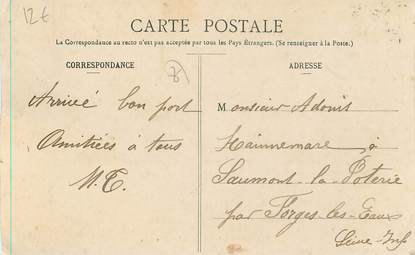 12 €
CARTE POSTALE
La Correspondance au recto n'est pas acceptée par tous les Pays Étrangers. (Se renseigner à la Poste.)
CORRESPONDANCE
ADRESSE
Arrivé bon port
Amitiées à tous
M. T.
Monsieur Adonis
Hainnemare à
Saumont-la-Poterie
par Forges-les-Eaux
Seine-Inf